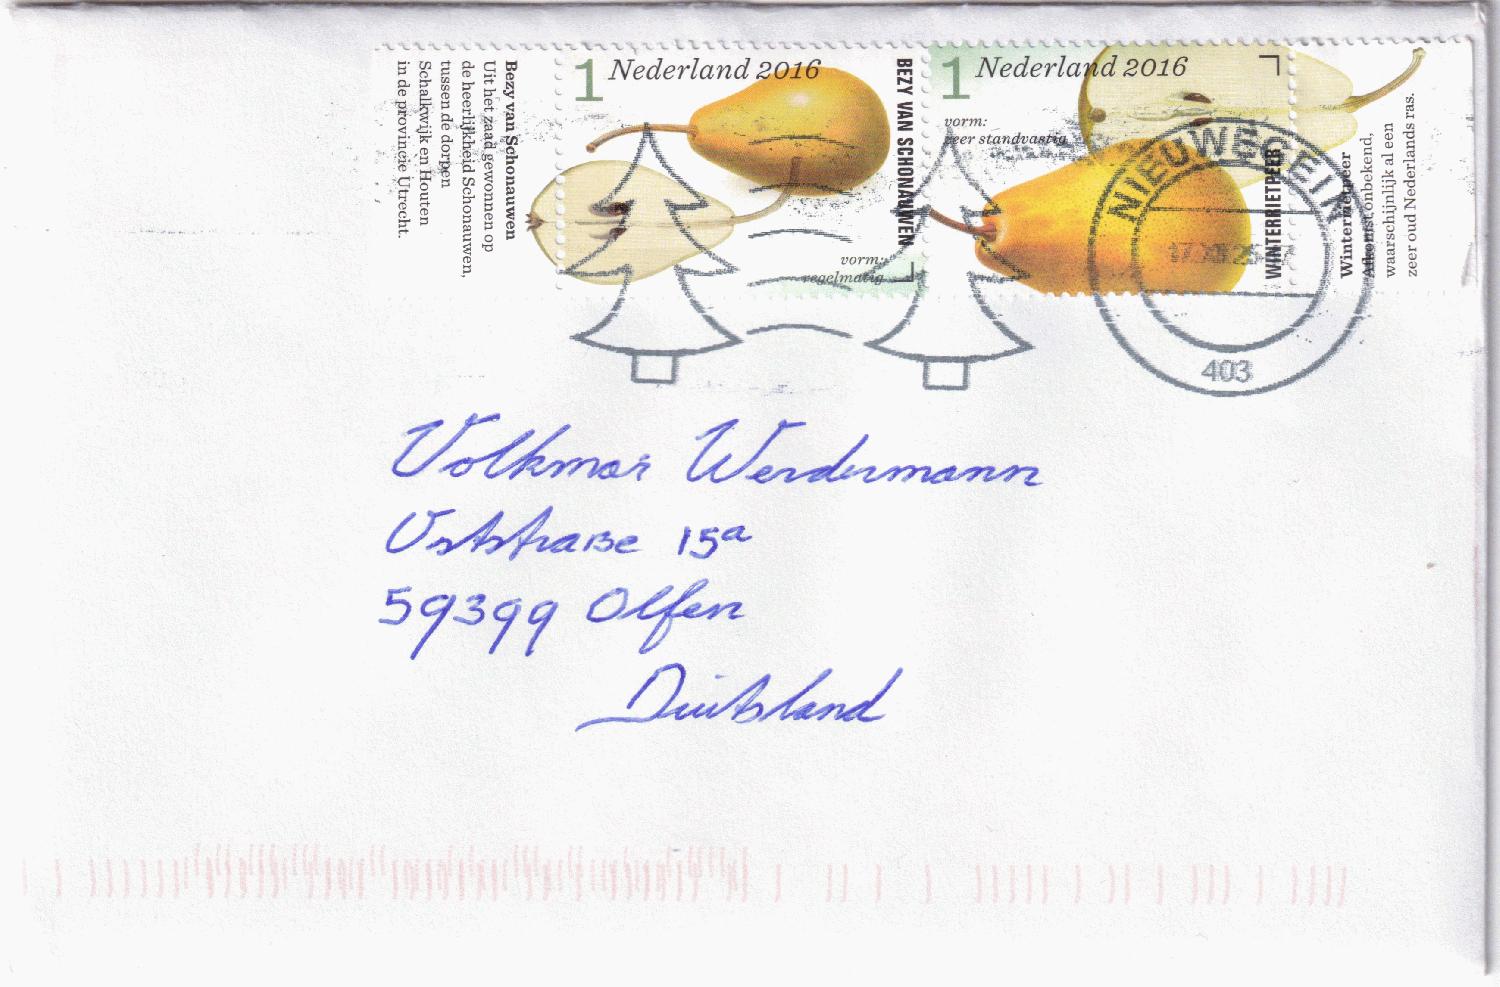 Bezy van Schonauwen
Uit het zaad gewonnen op
de heerlijkheid Schonauwen,
tussen de dorpen
Schalkwijk en Houten
in de provincie Utrecht.
1 Nederland 2016
BEZY VAN SCHONAUWEN
vorm:
regelmatig
1 Nederland 2016
vorm:
zeer standvastig
WINTERRIETPEER
Winterrietpeer
Afkomst onbekend,
waarschijnlijk al een
zeer oud Nederlands ras.
NIEUWEGEIN
403
Volkmar Werdermann
Uststraße 15a
59399 Olfen
Duitsland